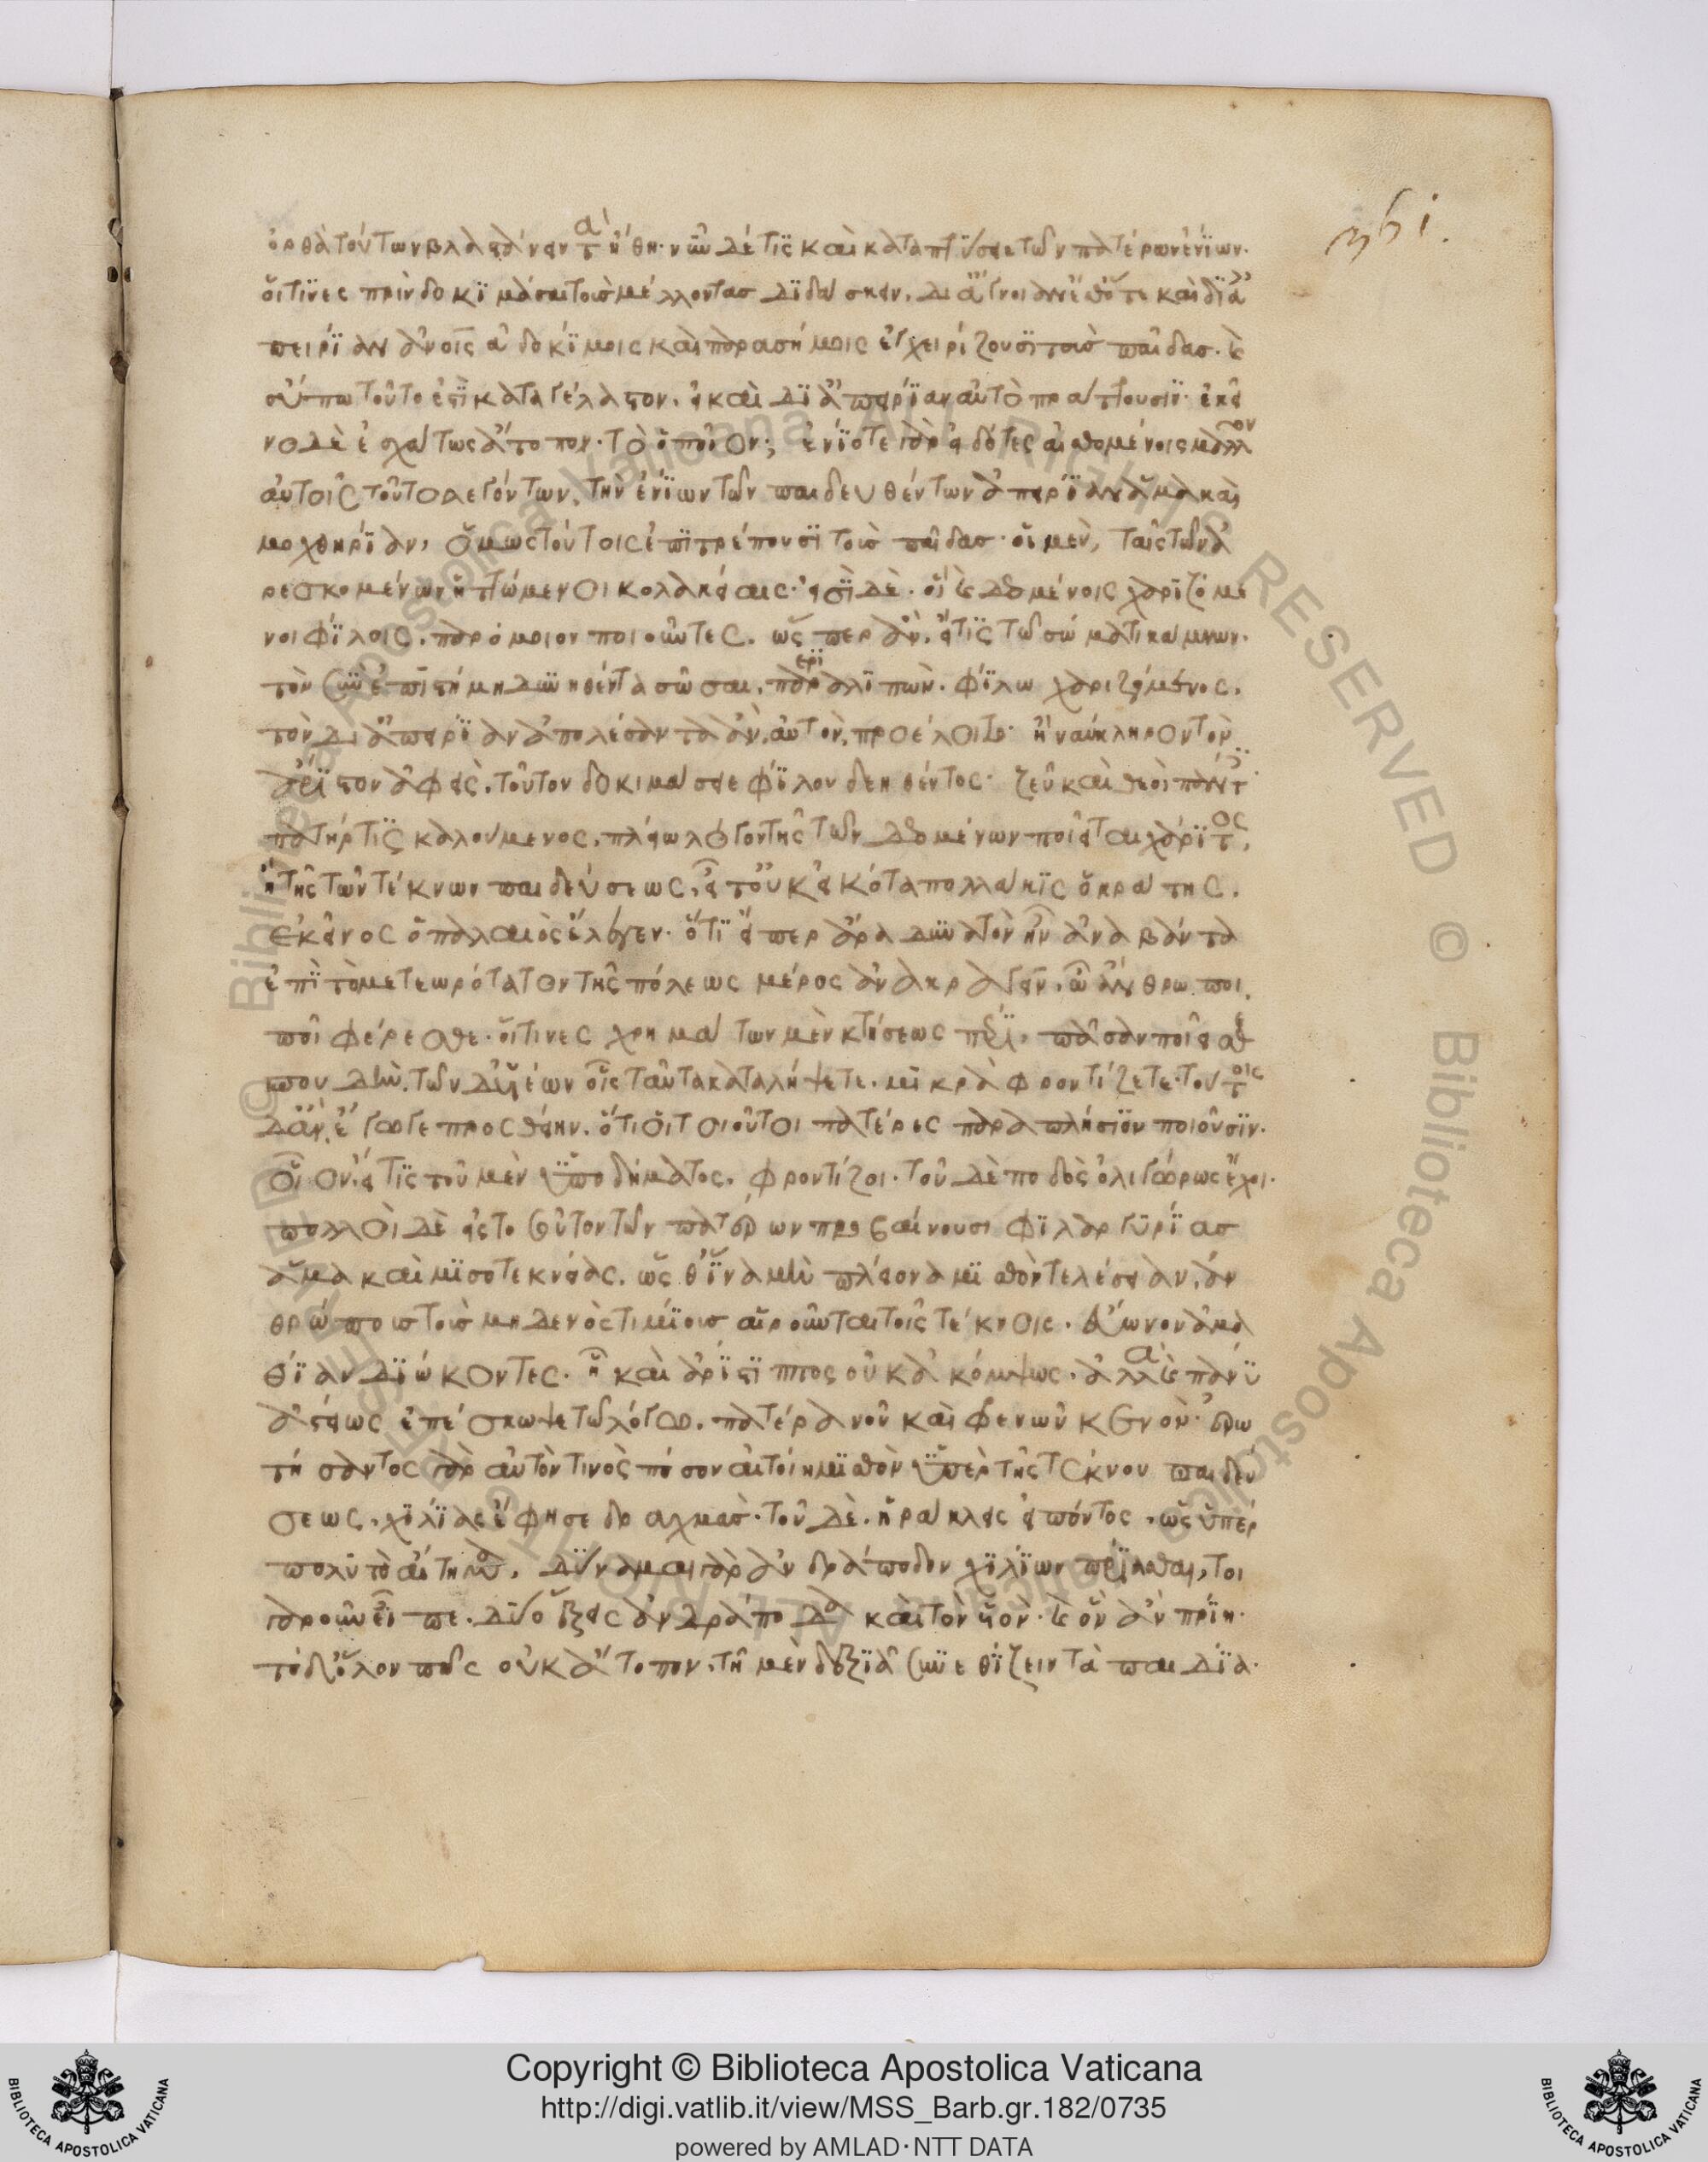 361.
ὀρθὰ τούτων βλαστάνειν τὰ ἤθη· νῦν δέ τις καὶ καταπτύσειε τῶν πατέρων ἐνίων·
οἵτινες πρὶν δοκιμάσαι τοὺς μέλλοντας διδάσκειν, δι' ἄγνοιαν ἔσθ' ὅτε καὶ δι' ἀ
πειρίαν ἀνοις ἀδοκίμοις καὶ παρασήμοις ἐγχειρίζουσι τοὺς παῖδας· καὶ
οὔπω τοῦτο ἐστὶ καταγέλαστον, εἰ καὶ δι' ἀπειρίαν αὐτὸ πράττουσιν· ἐκεῖ
νο δὲ ἐσχάτως ἄτοπον· τὸ ὁποῖον; ἐνίοτε γὰρ εἰδότες αἰσθομένοις μᾶλλον
αὐτοῖς τοῦτο λεγόντων, τὴν ἐνίων τῶν παιδευθέντων ἀπειρίαν ἅμα καὶ
μοχθηρίαν, ὅμως τούτοις ἐπιτρέπουσι τοὺς παῖδας· οἱ μὲν, ταῖς τῶν ἀ
ρεσκομένων ἡττώμενοι κολακείαις· εἰσὶ δὲ οἳ καὶ δεομένοις χαριζόμε
νοι φίλοις, παρόμοιον ποιοῦντες, ὥσπερ ἂν, εἴ τις τῷ σώματι κάμνων·
τὸν σὺν ἐπιστήμῃ δυνηθέντα σῶσαι, παραλιπὼν ερι φίλῳ χαριζόμενος,
τὸν δι' ἀπειρίαν ἀπολέσαντα ἂν, αὐτὸν, προέλοιτο· ἢ ναύκληρον τὸν
ἄριστον ἀφεὶς, τοῦτον δοκιμάσειε φίλου δεηθέντος· ζεῦ καὶ θεοὶ πάντ
πατήρ τις καλούμενος, πλείω λόγον τῆς τῶν δεομένων ποιεῖται χάριτος,
ἢ τῆς τῶν τέκνων παιδεύσεως, εἶτ' οὐκ εἰκότα πολλάκις ὁ κράτης
ἐκεῖνος ὁ παλαιὸς ἔλεγεν· ὅτι εἴπερ ἄρα δυνατὸν ἦν ἀναβάντα
ἐπὶ τὸ μετεωρότατον τῆς πόλεως μέρος ἀνακραγεῖν, ὦ ἄνθρωποι,
ποῖ φέρεσθε· οἵτινες χρημάτων μὲν κτήσεως πέρι, πᾶσαν ποιεῖσθε
σπουδὴν, τῶν δ' υἱέων οἷς ταῦτα καταλήψετε, μικρὰ φροντίζετε· τούτοις
δ' ἂν ἔγωγε προσθείην, ὅτι οἱ τοιοῦτοι πατέρες παραπλήσιον ποιοῦσιν·
οἷον, εἴ τις τοῦ μὲν ὑποδήματος, φροντίζοι· τοῦ δὲ ποδὸς ὀλιγώρως ἔχοι·
πολλοὶ δὲ εἰς τοσοῦτον τῶν πατέρων προβαίνουσι φιλαργυρίας
ἅμα καὶ μισοτεκνείας, ὥσθ' ἵνα μὴ πλείονα μισθὸν τελέσειαν, ἀν
θρώπους τοὺς μηδενὸς τιμίους αἱροῦνται τοῖς τέκνοις· εὔωνον ἀμα
θίαν διώκοντες· ᾗ καὶ ἀρίστιππος οὐκ ἀκόμψως, ἀλλὰ καὶ πάνυ
ἀστείως ἐπέσκωψε τῷ λόγῳ, πατέρα νοῦ καὶ φρενῶν κενὸν· ἐρω
τήσαντος γὰρ αὐτόν τινος πόσον αἰτοίη μισθὸν ὑπὲρ τῆς τέκνου παιδεύ
σεως, χιλίας ἔφησε δραχμάς· τοῦ δὲ, ἡράκλεις εἰπόντος, ὡς ὑπέρ
πολυ τὸ αἴτημα, δύναμαι γὰρ ἀνδράποδον χιλίων πρίασθαι, τοι
γαροῦν εἶπε, δύο ἕξεις ἀνδράποδα καὶ τὸν υἱὸν· καὶ ὃν ἂν πρίῃ·
τὸ δ' ὅλον πῶς οὐκ ἄτοπον, τῇ μὲν δεξιᾷ συνεθίζειν τὰ παιδία·
Copyright © Biblioteca Apostolica Vaticana
http://digi.vatlib.it/view/MSS_Barb.gr.182/0735
powered by AMLAD·NTT DATA
BIBLIOTECA APOSTOLICA VATICANA
BIBLIOTECA APOSTOLICA VATICANA